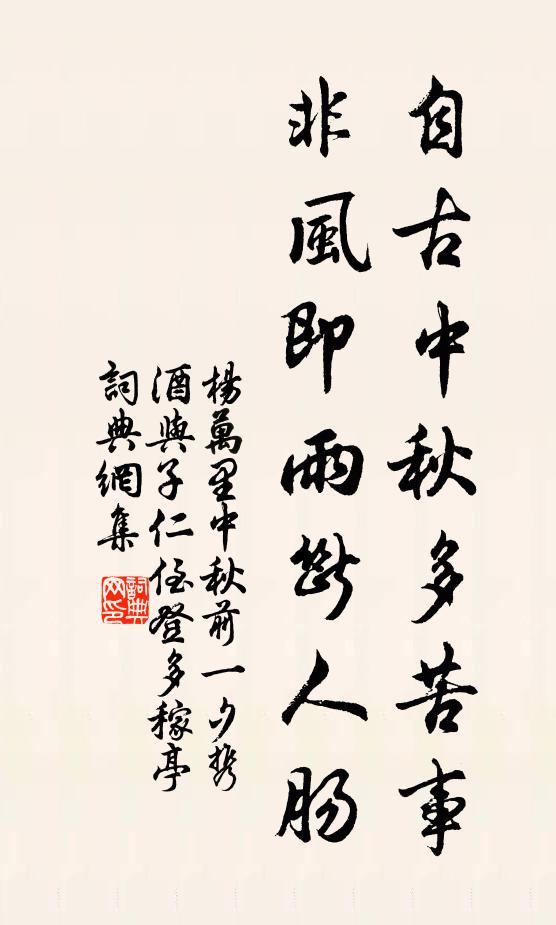 自古中秋多苦事
非風即雨斷人腸
楊萬里中秋前一夕攜
酒與子仁侄登多稼亭
詞典網集
詞典網印